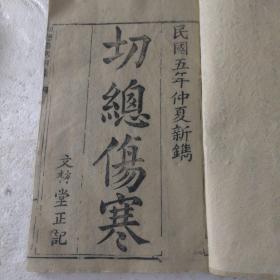 民國五年仲夏新鐫
切總傷寒
文林堂正記